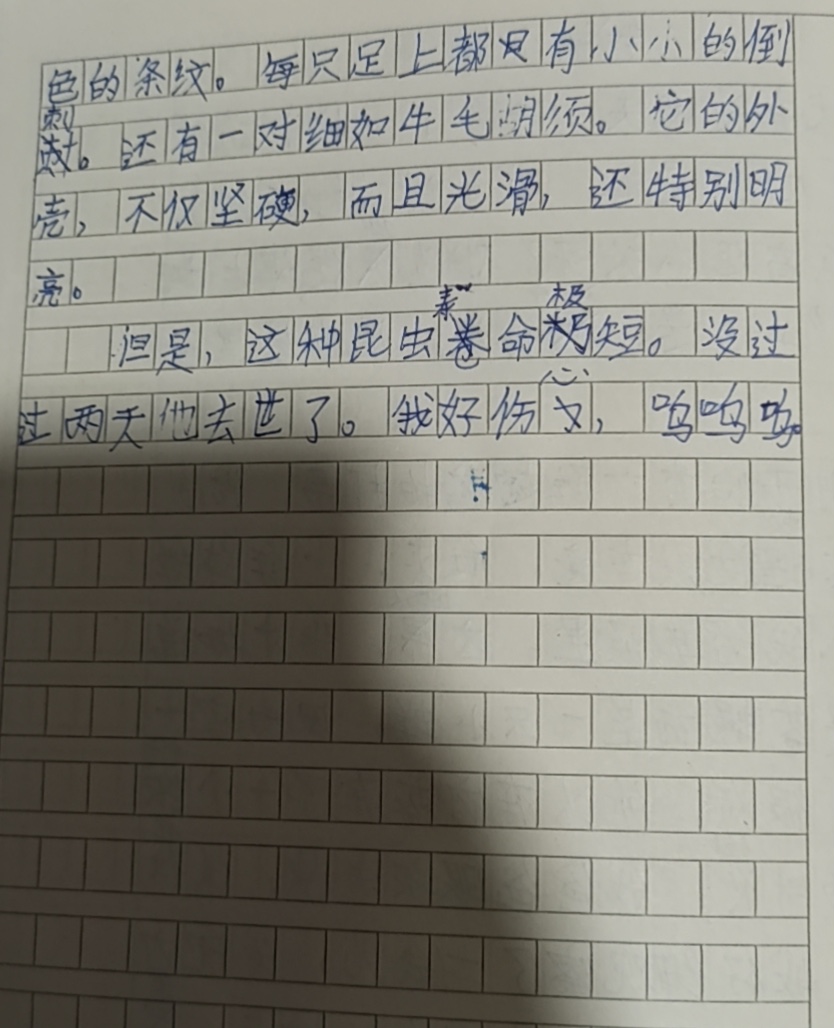 色的条纹。每只足上都只有小小的倒
刺。还有一对细如牛毛胡须。它的外
壳，不仅坚硬，而且光滑，还特别明
亮。
但是，这种昆虫寿命极短。没过
过两天他去世了。我好伤心，呜呜呜。